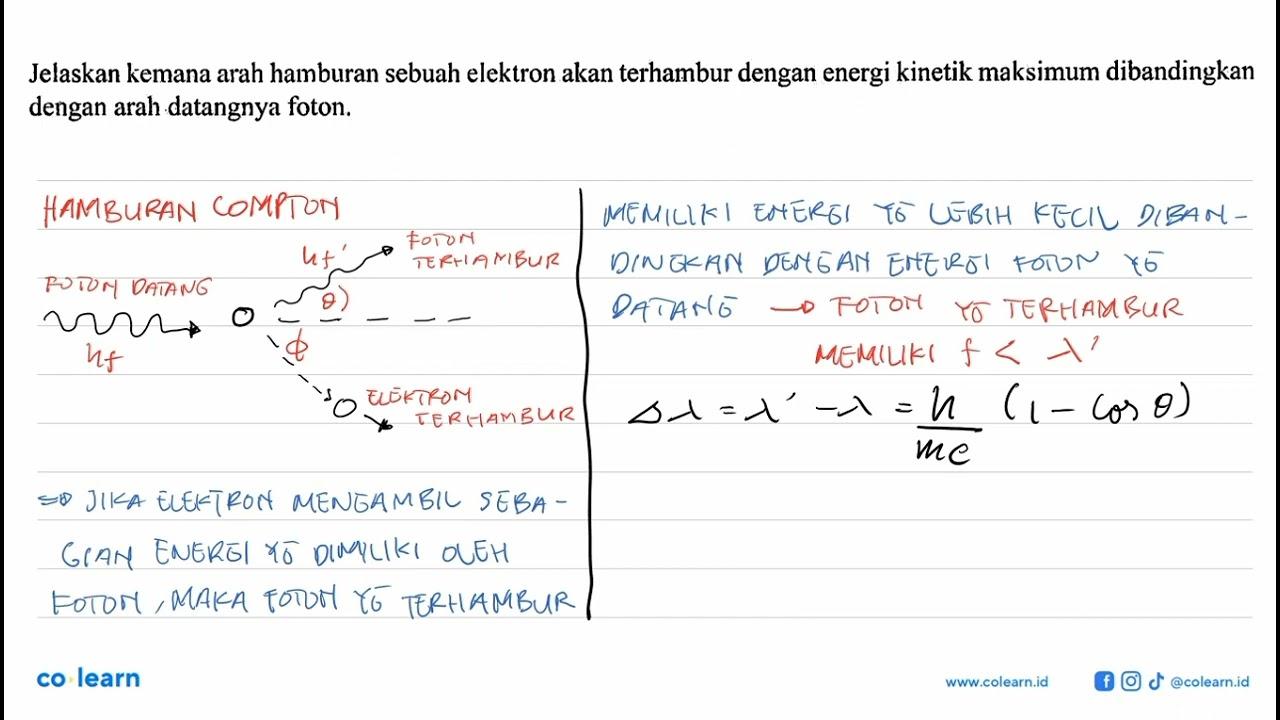 Jelaskan kemana arah hamburan sebuah elektron akan terhambur dengan energi kinetik maksimum dibandingkan
dengan arah datangnya foton.
HAMBURAN COMPTON
FOTON DATANG
hf
hf'
FOTON
TERHAMBUR
θ)
ϕ
ELEKTRON
TERHAMBUR
⇒ JIKA ELEKTRON MENGAMBIL SEBA-
GIAN ENERGI YG DIMILIKI OLEH
FOTON, MAKA FOTON YG TERHAMBUR
MEMILIKI ENERGI YG LEBIH KECIL DIBAN-
DINGKAN DENGAN ENERGI FOTON YG
DATANG → FOTON YG TERHAMBUR
MEMILIKI f < λ'
Δλ = λ' - λ = h/mc (1 - cos θ)
co·learn
www.colearn.id
@colearn.id